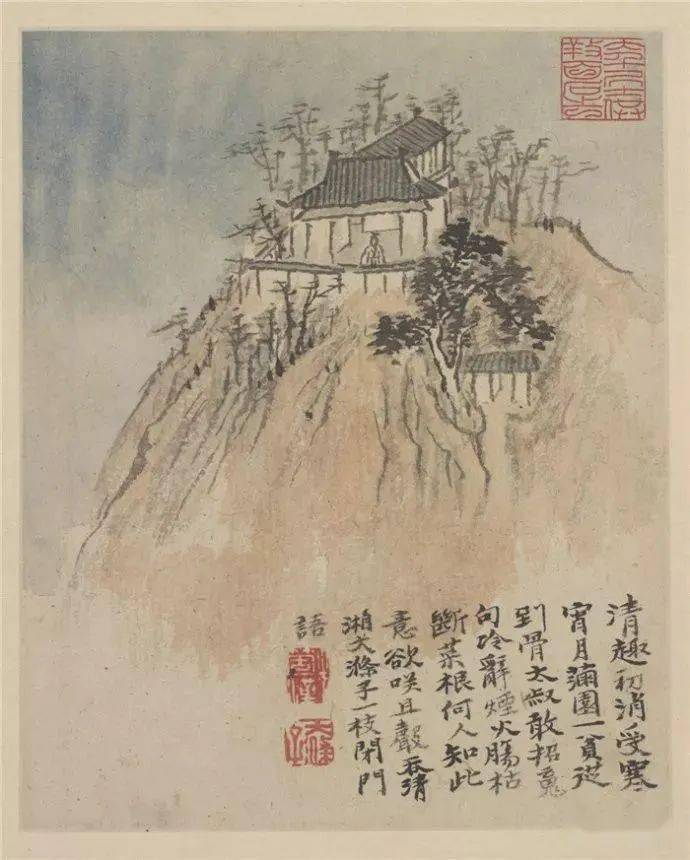 清趣初消受寒
宵月滿園一貧從
到骨太叔敢招魂
句冷辭煙火腸枯
斷菜根何人知此
意欲咲且聲吞清
湘大滌子一枝閉門
語